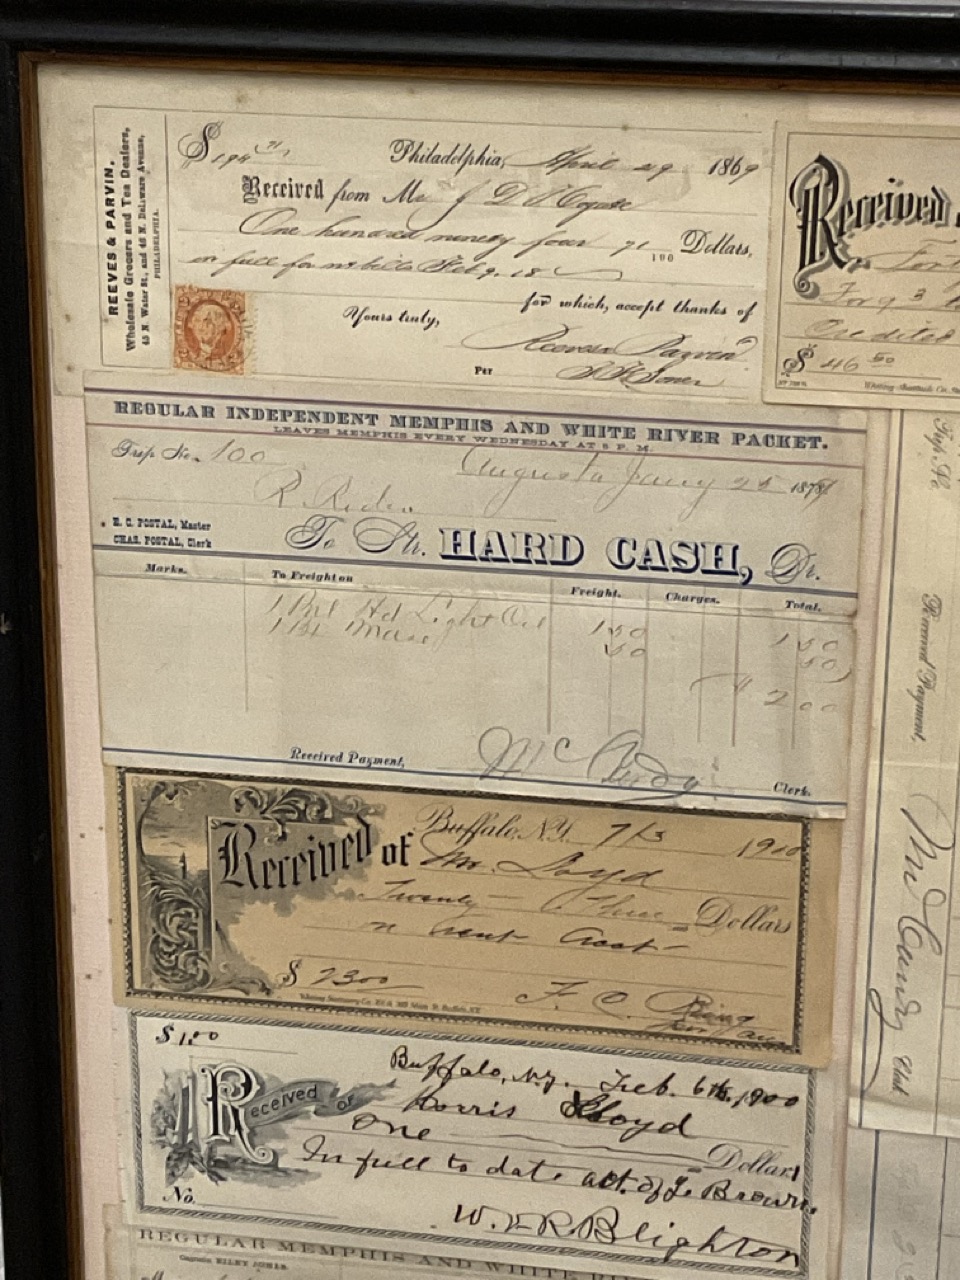 REEVES & PARVIN,
Wholesale Grocers and Tea Dealers,
45 N. Water St., and 46 N. Delaware Avenue,
PHILADELPHIA.
$194 71
Philadelphia, April 29 1869
Received from Mr J D
One hundred ninety four 71/100 Dollars,
in full for
for which, accept thanks of
Yours truly,
Reeves Parvin
Per
REGULAR INDEPENDENT MEMPHIS AND WHITE RIVER PACKET.
LEAVES MEMPHIS EVERY WEDNESDAY AT 5 P. M.
Trip No. 100
Augusta Jany 25 187
R.
E. C. POSTAL, Master
CHAS. POSTAL, Clerk
To Str. HARD CASH, Dr.
Marks. To Freight on Freight. Charges. Total.
1 Bbl Hd Light Oil 1 50 1 50
1 50 50
$ 2 00
Received Payment,
Clerk.
Buffalo, N.Y. 7/3 1900
Received of Mr. Loyd
Twenty - Three Dollars
on
$ 23 00
F. C.
$1.00
Buffalo, N.Y. Feb. 6th, 1900
Received of
Morris Lloyd
One Dollars
In full to date act. of L. Brown.
No.
W. E. R. Bleighton
REGULAR MEMPHIS AND WHITE
Captain RILEY JONES.
Received
3
Credited
$ 46 50
Trip No.
Received Payment,